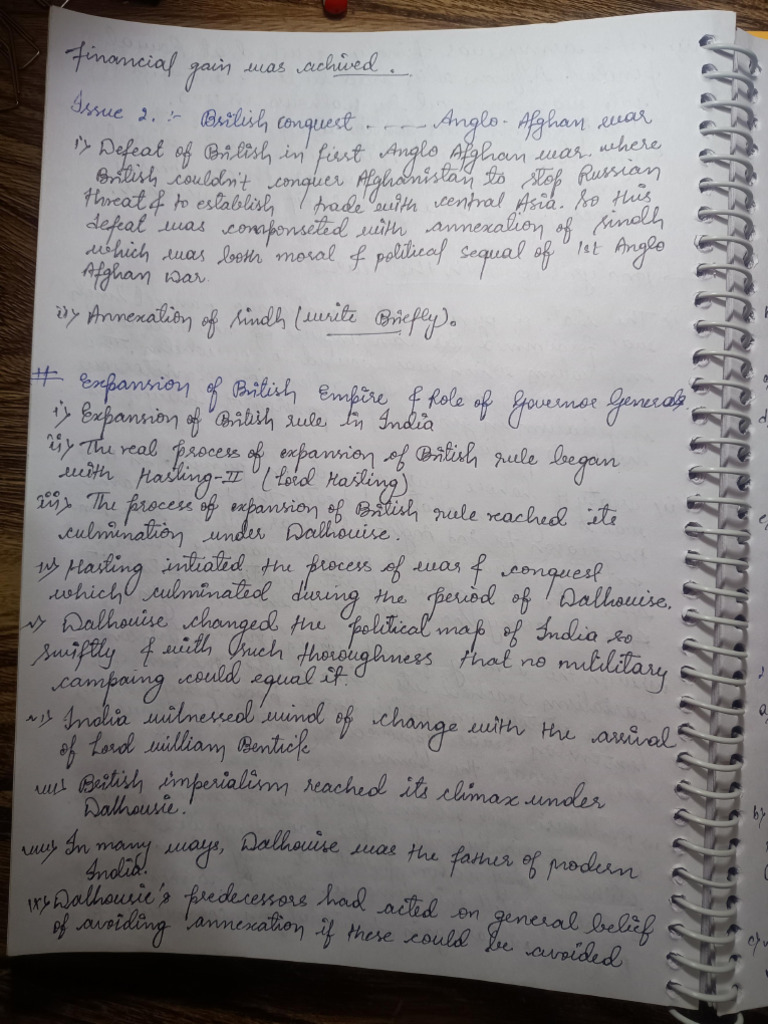 Financial gain was achived.
Issue 2. :- British conquest ---- Anglo-Afghan war
i) Defeat of British in first Anglo Afghan war. where
British couldn't conquer Afghanistan to stop Russian
threat & to establish trade with central Asia. So this
defeat was componseted with annexation of Sindh
which was both moral & political sequal of 1st Anglo
Afghan war
ii) Annexation of Sindh (write Briefly).
# Expansion of British Empire & Role of Governor Generals
i) Expansion of British rule in India
ii) The real process of expansion of British rule began
with Hasting-II (Lord Hasting)
iii) The process of expansion of British rule reached its
culmination under Dalhouise.
iv) Hasting intiated the process of war & conquest
which culminated during the period of Dalhouise.
v) Dalhouise changed the political map of India so
swiftly & with such thoroughness that no mitilitary
campaing could equal it.
vi) India witnessed wind of change with the arrival
of Lord william Bentick
vii) British imperialism reached its climax under
Dalhousie.
viii) In many ways, Dalhouise was the father of modern
India.
ix) Dalhousie's predecessors had acted on general belief
of avoiding annexation if these could be avoided